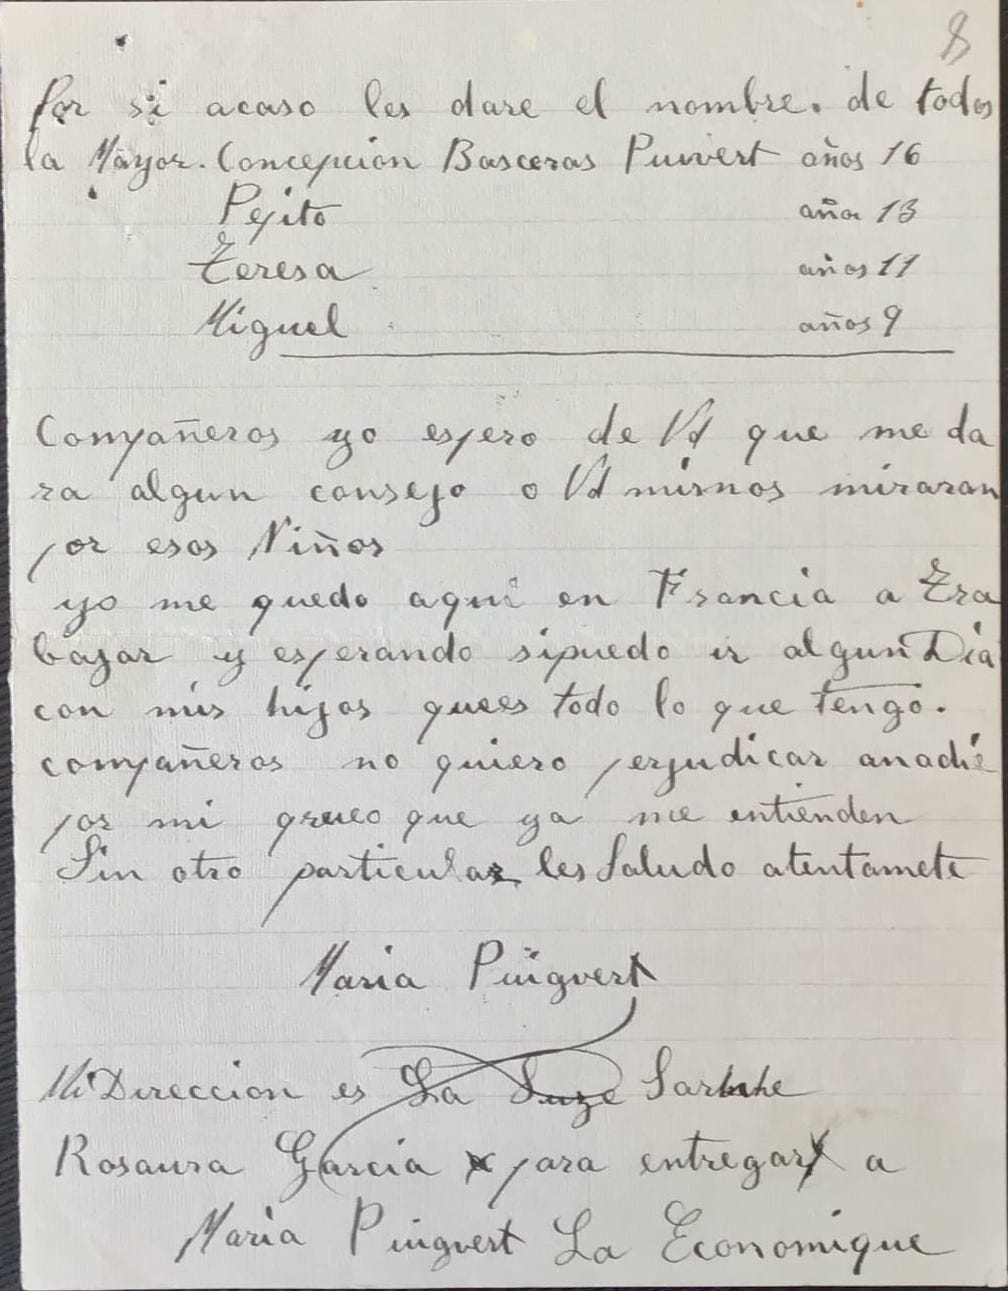 8
Por si acaso les dare el nombre. de todos
la Mayor. Concepcion Basceras Puivert años 16
Pepito años 13
Teresa años 11
Miguel años 9
Compañeros yo espero de Vd que me da
ra algun consejo o Vd mismos miraran
por esos Niños
yo me quedo aqui en Francia a Tra
bajar y esperando sipuedo ir algun Dia
con mis hijos quees todo lo que tengo.
compañeros no quiero perjudicar anadie
por mi que ya me entienden
Sin otro particular les Saludo atentamete
Maria Puigvert
Mi Direccion es La Suze Sarthe
Rosaura Garcia para entregar a
Maria Puigvert La Economique